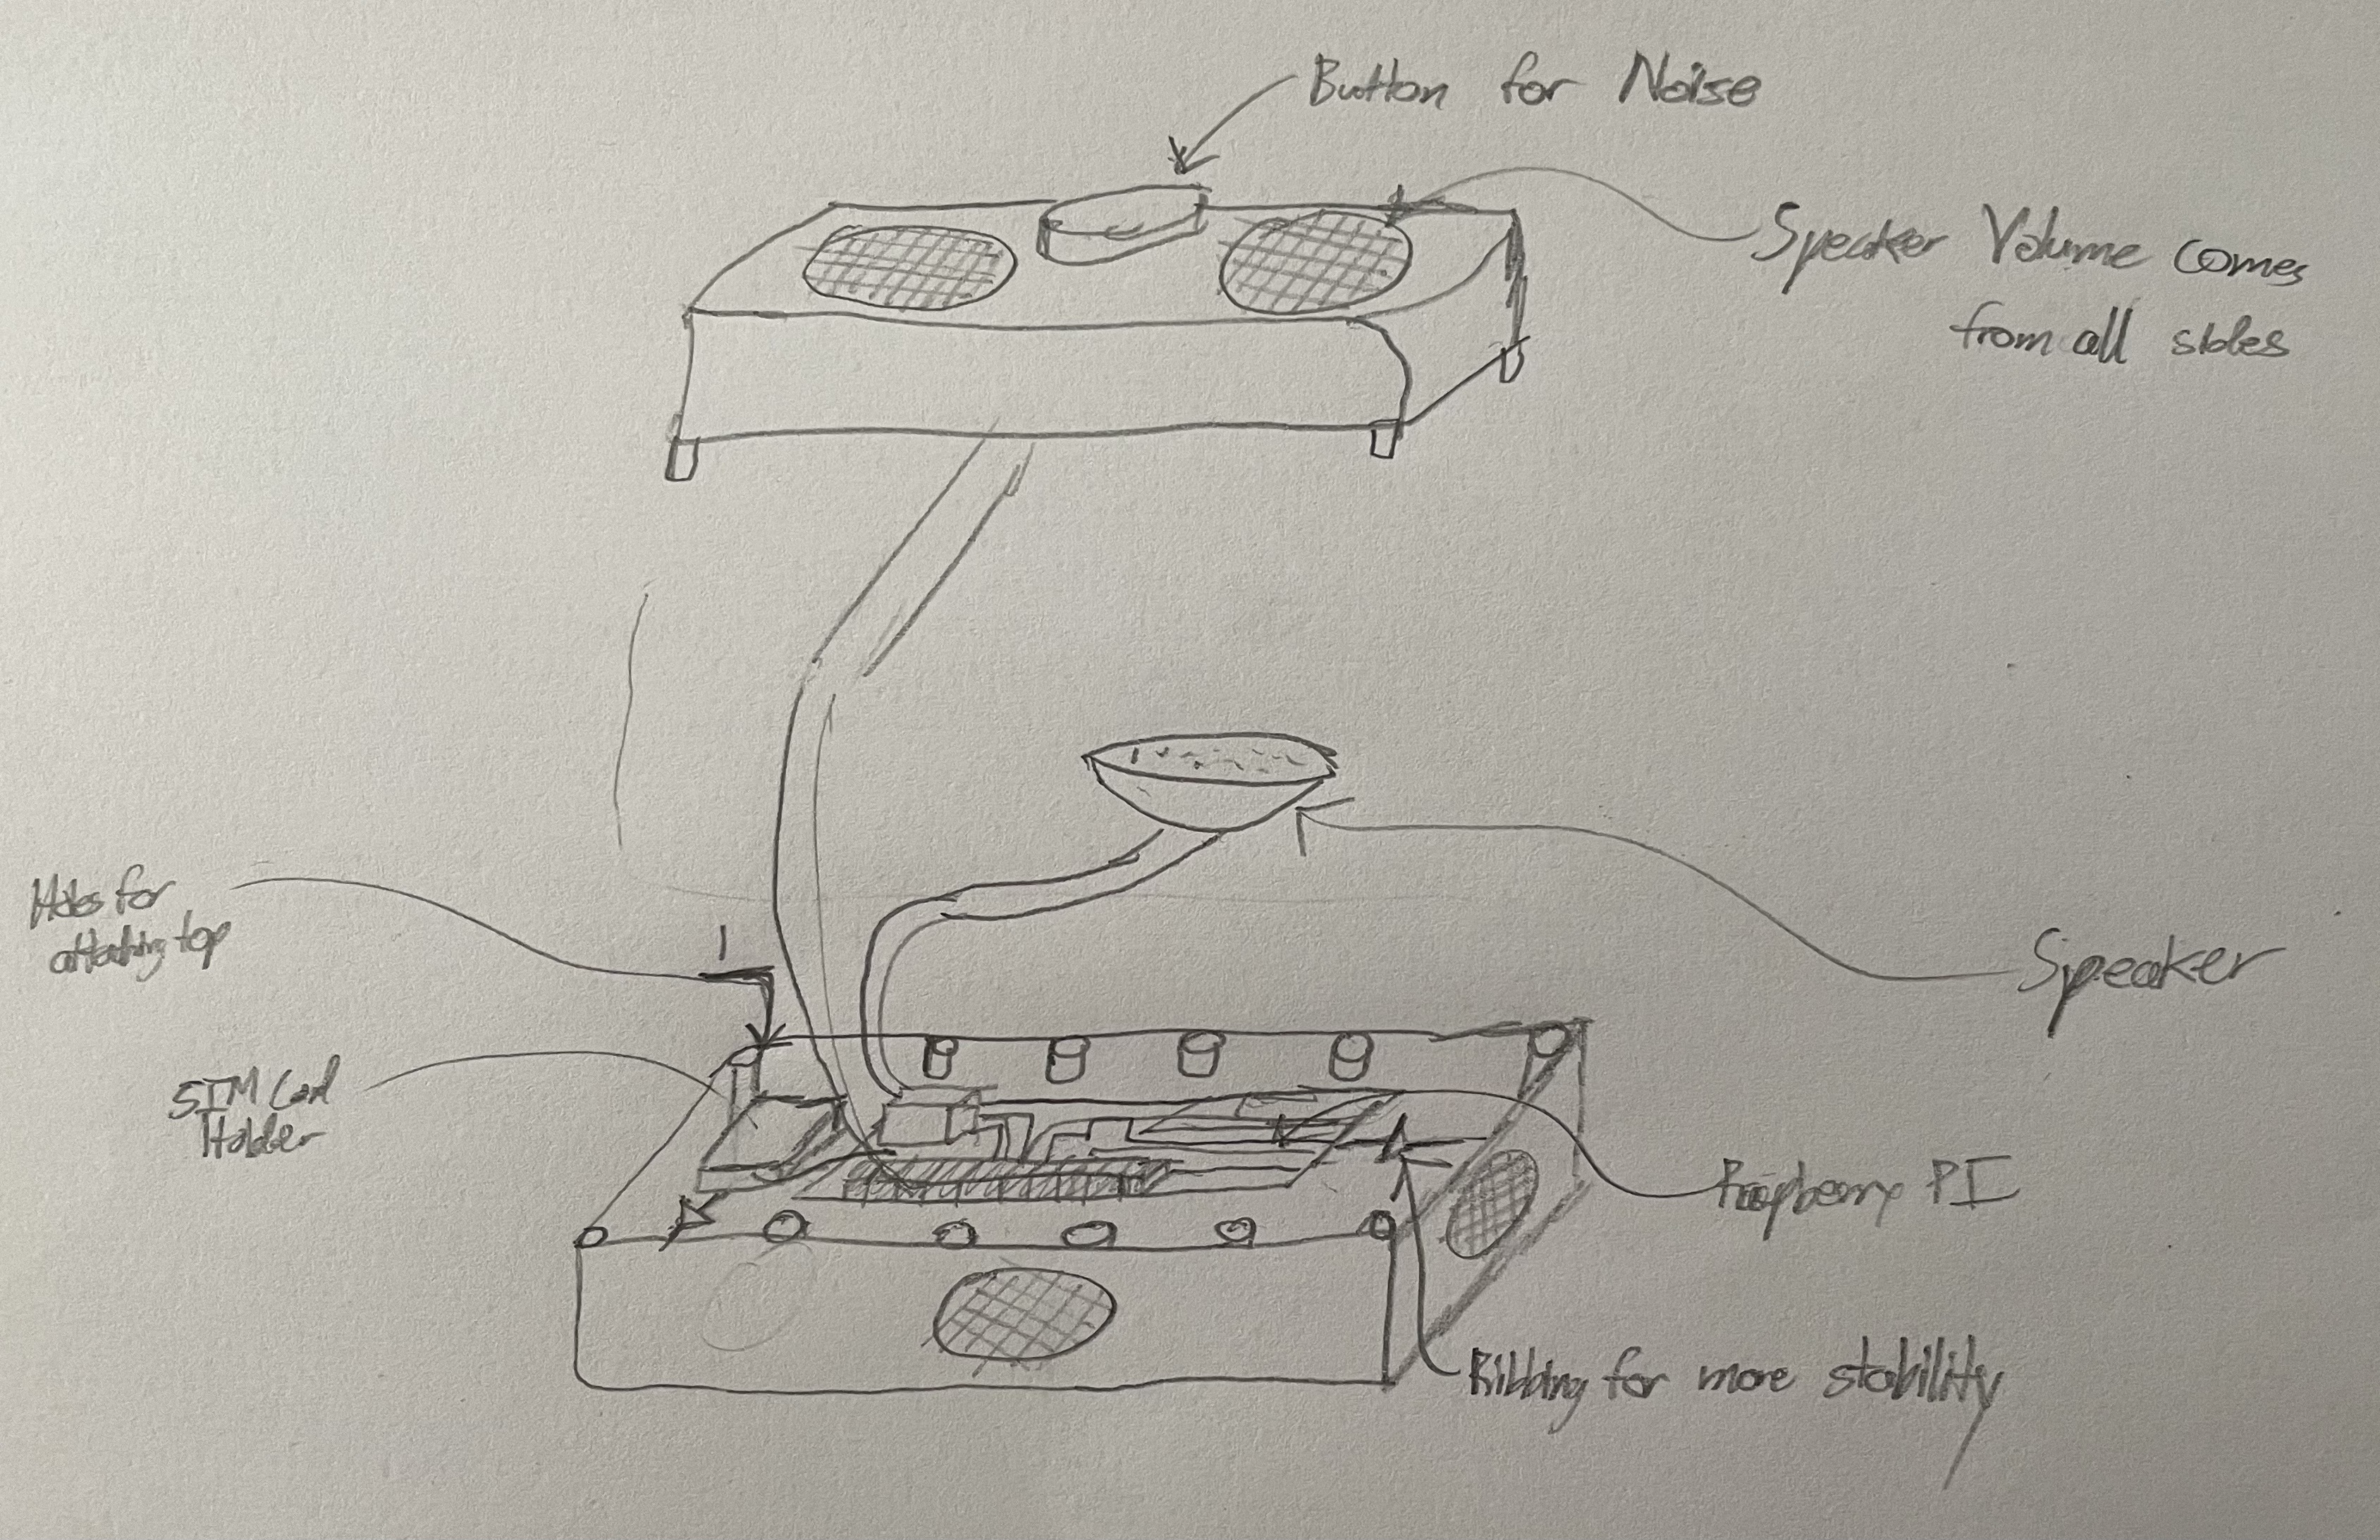 Button for Noise
Speaker Volume comes
from all sides
Holes for
attaching top
Speaker
SIM Card
Holder
Raspberry PI
Ribbing for more stability